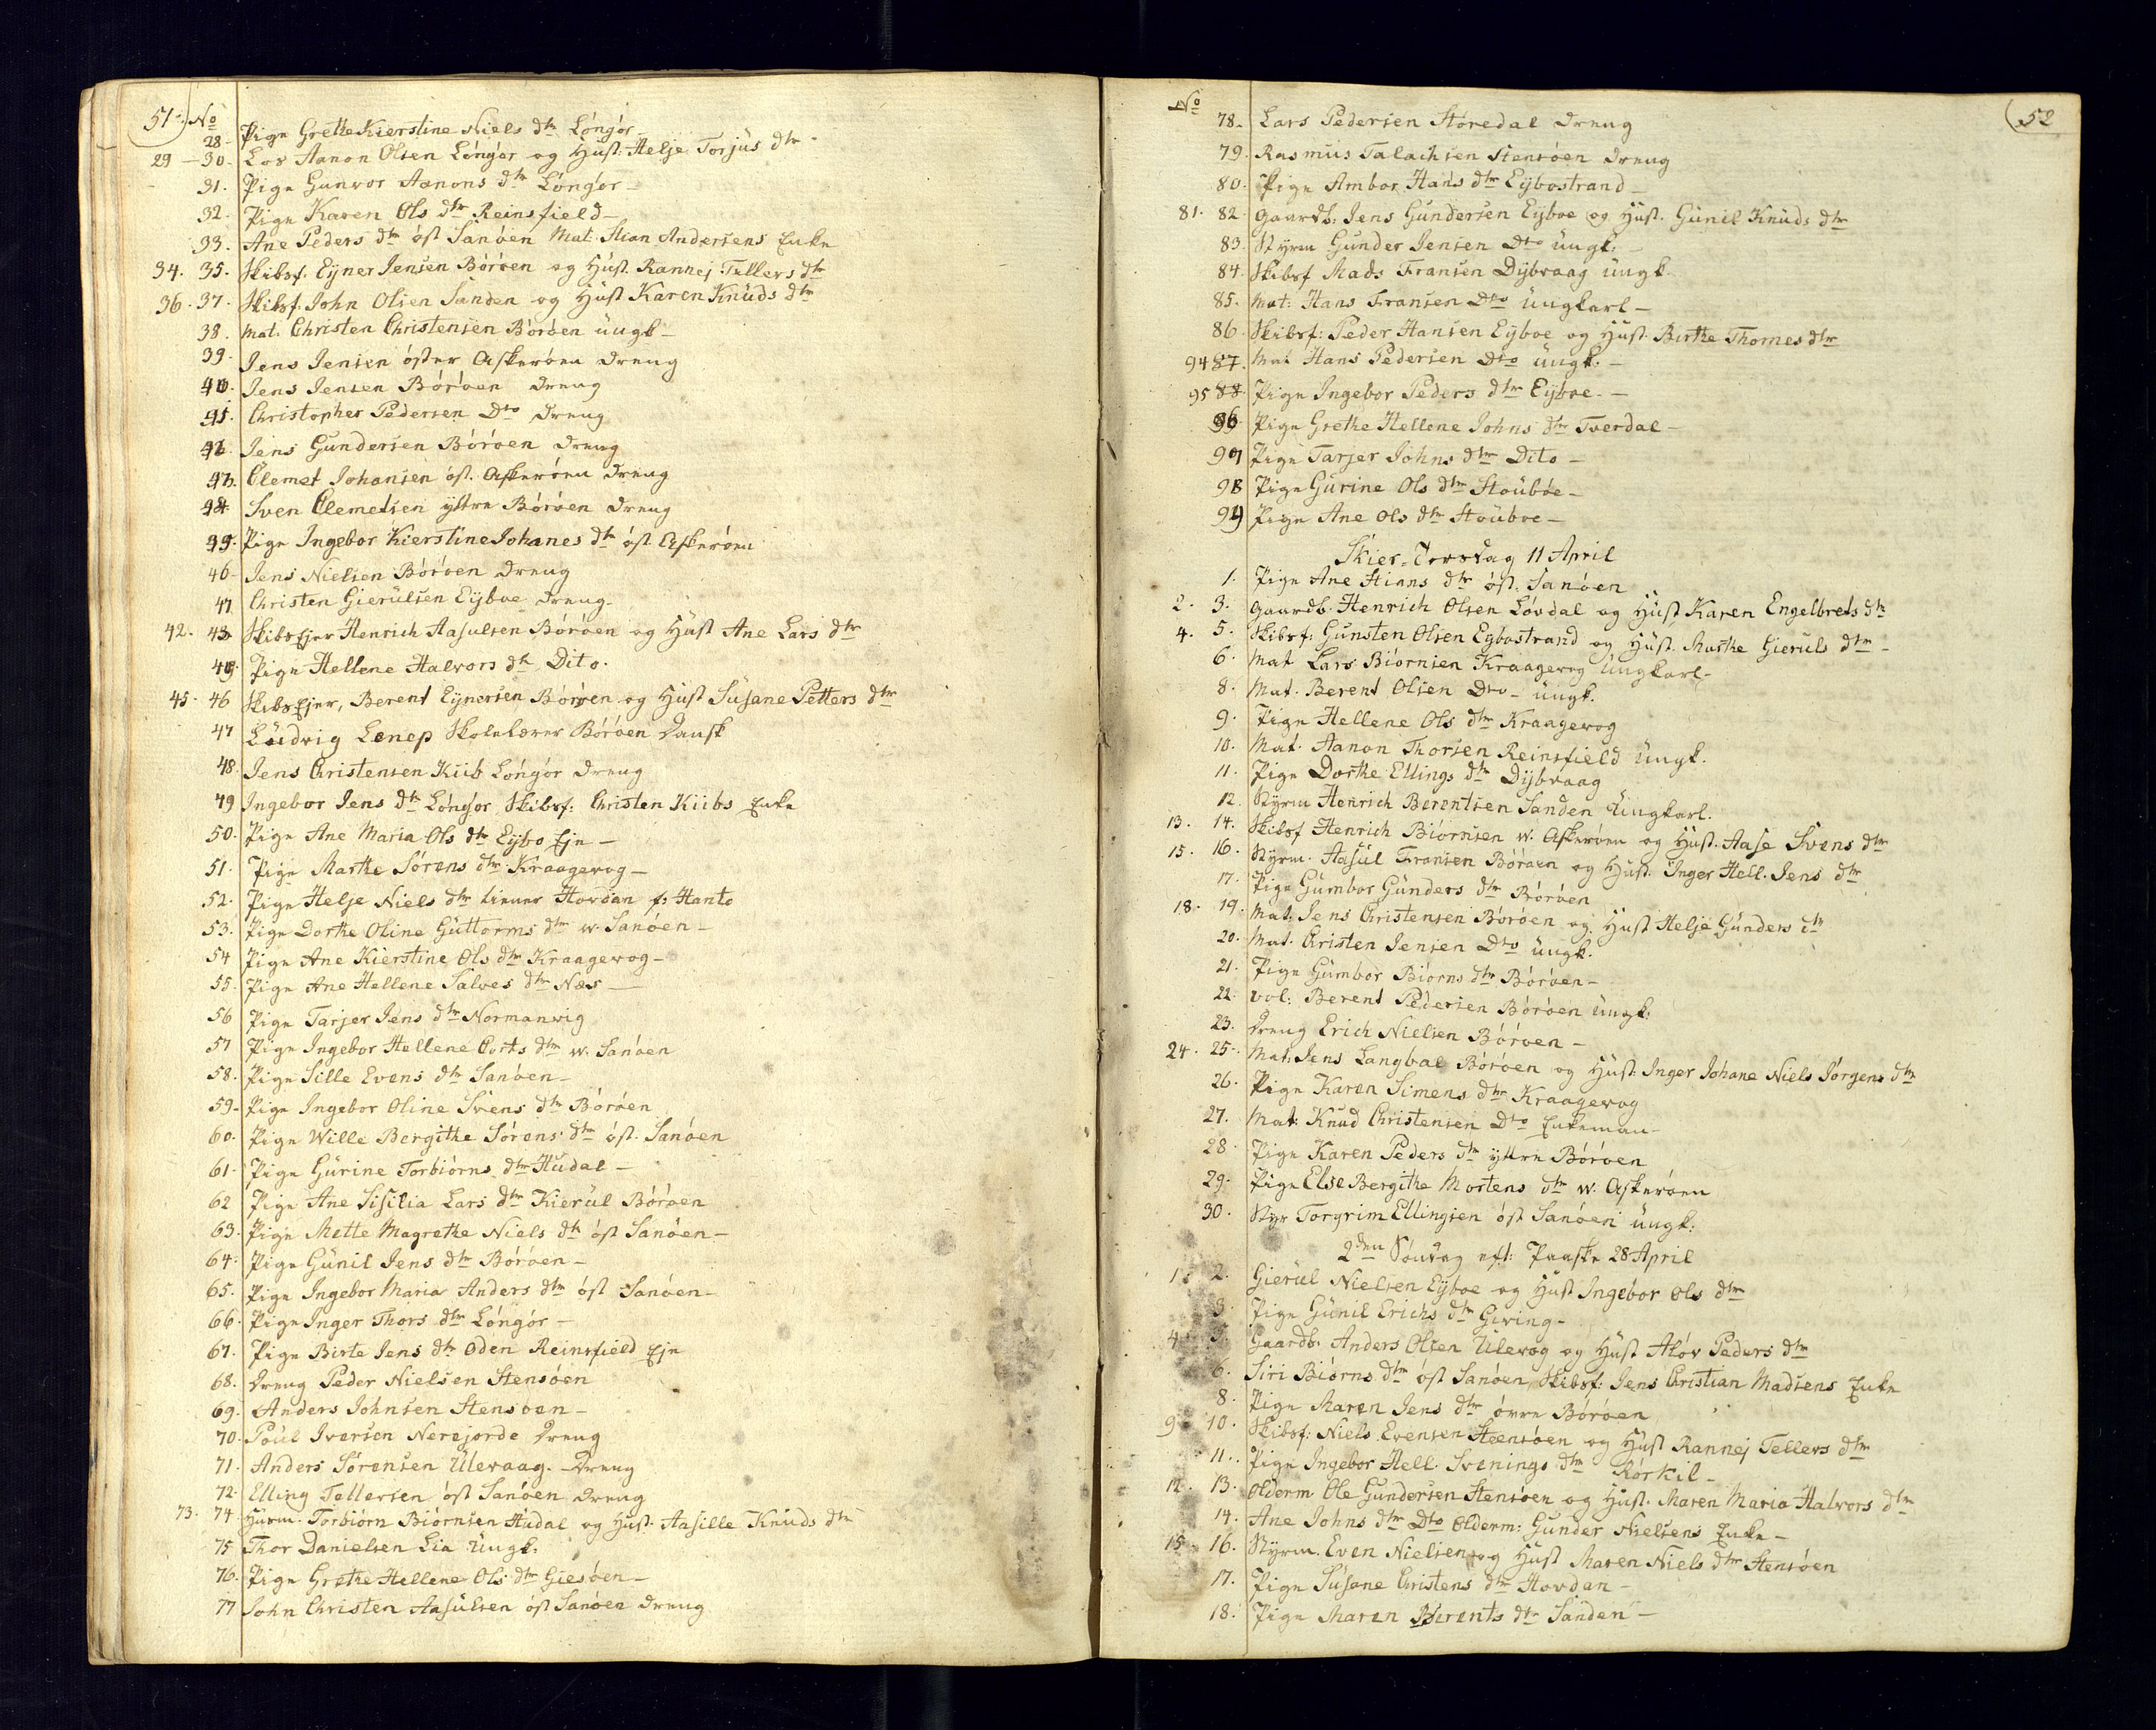 51. No
28. Pige Grethe Kierstine Niels dtr Löngör
29 - 30. Los Aanon Olsen Löngör og Hust: Helje Torjus dtr
31. Pige Gunvor Aanons dtr Löngör
32. Pige Karen Ols dtr Reinsfield
33. Ane Peders dtr öst Sanöen Mat: Stian Andersens Enke
34. 35. Skibsf: Eyner Jensen Böröen og Hust. Rannej Tellers dtr
36. 37. Skibsf. John Olsen Sanden og Hust Karen Knuds dtr
38. Mat: Christen Christensen Böröen ungk
39. Jens Jensen öster Askeröen Dreng
40. Jens Jensen Böröen Dreng
41. Christopher Pedersen Dto Dreng
Jens Gundersen Böröen Dreng
Clemet Johansen öst. Askeröen Dreng
Sven Clemetsen yttre Böröen Dreng
Pige Ingebor Kierstine Johanes dtr öst Askeröen
46. Jens Nielsen Böröen Dreng
41 Christen Gierulsen Eijboe Dreng
42. 43 Skibsejer Henrich Aasulsen Böröen og Hust Ane Lars dtr
44. Pige Hellene Halvors dtr Dito.
45. 46 Skibsejer, Berent Eynersen Böröen og Hust Susane Petters dtr
47 Ludvig Lenep Skolelærer Böröen Dansk
48. Jens Christensen Kiib Löngör Dreng
49 Ingebor Jens dtr Löngör Skibsf: Christen Kiibs Enke
50. Pige Ane Maria Ols dtr Eijbo Eje
51. Pige Marthe Sörens dtr Kraagevog
52. Pige Helje Niels dtr tiener Hovdan f: Hanto
53. Pige Dorthe Oline Guttorms dtr w. Sanöen
54 Pige Ane Kierstine Ols dtr Kraagevog
55. Pige Ane Hellene Salves dtr Næs
56 Pige Tarjer Jens dtr Normanvig
57 Pige Ingebor Hellene Corts dtr w. Sanöen
58. Pige Sille Evens dtr Sanöen
59. Pige Ingebor Oline Svens dtr Böröen
60. Pige Wille Bergithe Sörens dtr öst. Sanöen
61. Pige Gurine Torbiörns dtr Hudal
62 Pige Ane Sisilia Lars dtr Kierul Böröen
63. Pige Mette Magrethe Niels dtr öst Sanöen
64. Pige Gunil Jens dtr Böröen
65. Pige Ingebor Maria Anders dtr öst Sanöen
66. Pige Inger Thors dtr Löngör
67. Pige Birte Jens dtr Oden Reinsfield Eje
68. Dreng Peder Nielsen Stensöen
69. Anders Johnsen Stensöen
70. Poul Iversen Nerejorde Dreng
71. Anders Sörensen Ulevaag. Dreng
72. Elling Tellersen öst Sanöen Dreng
73. 74 Styrm. Torbiörn Biörnsen Hudal og Hust. Aasille Knuds dtr
75 Thor Danielsen Lia Ungk.
76. Pige Grethe Hellene Ols dtr Giesöen
77 John Christen Aasulsen öst Sanöen Dreng
No 52
78. Lars Pedersen Störedal Dreng
79. Rasmus Talachsen Stensöen Dreng
80. Pige Ambor Hans dtr Eijbostrand
81. 82. Gaardb: Jens Gundersen Eijboe og Hust. Gunil Knuds dtr
83. Styrm Gunder Jensen Dto ungk:
84. Skibsf Mads Fransen Dijbvaag ungk.
85. Mat: Hans Fransen Dto Ungkarl
86. Skibsf: Peder Hansen Eijboe og Hust. Birthe Thomes dtr
94 87. Mat Hans Pedersen Dto ungk.
95 88. Pige Ingebor Peders dtr Eijboe.
96 Pige Grethe Hellene Johns dtr Tverdal
97 Pige Tarjer Johns dtr Dito
98 Pige Gurine Ols dtr Stouböe
99 Pige Ane Ols dtr Stouboe
Skier-Torsdag 11 April
1. Pige Ane Stians dtr öst. Sanöen
2. 3. Gaardb. Henrich Olsen Lövdal og Hust Karen Engelbrets dtr
4. 5. Skibsf: Gunsten Olsen Egbostrand og Hust. Marthe Gieruls dtr
6. Mat Lars Biörnsen Kraagevog Ungkarl
8. Mat. Berent Olsen Dto ungk.
9. Pige Hellene Ols dtr Kraagevog
10. Mat. Aanon Thorsen Reinsfield Ungk.
11. Pige Dorthe Ellings dtr Dijbvaag
12. Styrm Henrich Berentsen Sanden Ungkarl.
13. 14. Skibsf Henrich Biörnsen w. Askeröen og Hust. Aase Svens dtr
15. 16. Styrm. Aasul Fransen Böröen og Hust. Inger Hell. Jens dtr
17. Pige Gumbor Gunders dtr Böröen
18. 19. Mat: Jens Christensen Böröen og Hust Helje Gunders dtr
20. Mat. Cristen Jensen Dto ungk.
21. Pige Gumbor Biörns dtr Böröen
22. vol: Berent Pedersen Böröen ungk:
23. Dreng Erich Nielsen Böröen
24. 25. Mat: Jens Langbal Böröen og Hust: Inger Johane Niels Jörgens dtr
26. Pige Karen Simens dtr Kraagevog
27. Mat: Knud Christensen Dto Enkeman
28. Pige Karen Peders dtr yttre Böröen
29. Pige Else Bergithe Mortens dtr w. Askeröen
30. Styr Torgrim Ellingsen öst Sanöen ungk:
2den Söndag eft: Paaske 28 April
1. 2. Gierul Nielsen Eijboe og Hust Ingebor Ols dtr
3. Pige Gunil Erichs dtr Giving
4. 5. Gaardb. Anders Olsen Ulevog og Hust Alöv Peders dtr
6. Siri Biörns dtr öst Sanöen Skibsf: Jens Christian Madsens Enke
8. Pige Maren Jens dtr övre Böröen
9. 10. Skibsf: Niels Evensen Steensöen og Hust Rannej Tellers dtr
11. Pige Ingebor Hell. Svenings dtr Rörkil
12. 13. Olderm Ole Gundersen Stensöen og Hust. Maren Maria Halvors dtr
14. Ane Johns dtr Dto Olderm: Gunder Nielsens Enke
15. 16. Styrm. Even Nielsen og Hust Maren Niels dtr Stensöen
17. Pige Susane Christens dtr Hovdan
18. Pige Maren Berents dtr Sanden